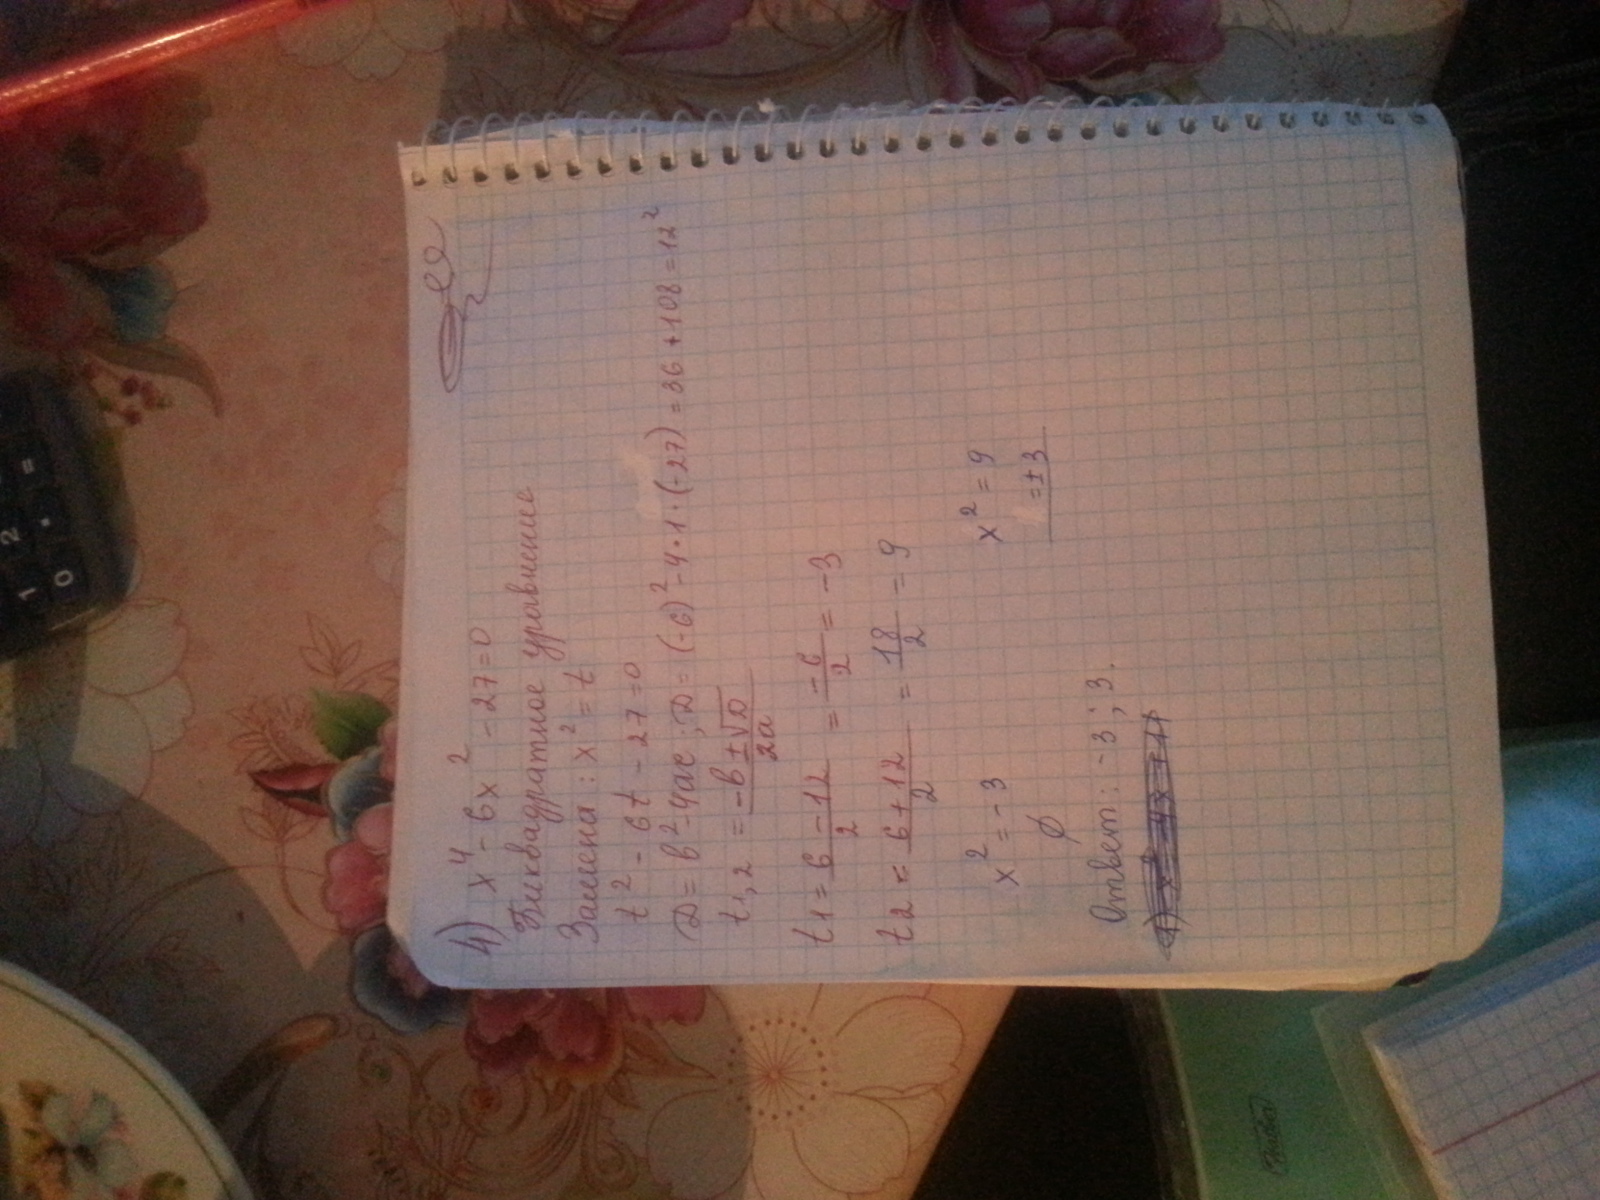 4) x⁴ - 6x² - 27 = 0
Биквадратное уравнение.
Замена: x² = t
t² - 6t - 27 = 0
D = в² - 4ac; D = (-6)² - 4·1·(-27) = 36 + 108 = 12²
t1,2 = (-в ± √D)/2a
t1 = (6 - 12)/2 = -6/2 = -3
t2 = (6 + 12)/2 = 18/2 = 9
x² = -3 x² = 9
∅ = ±3
Ответ: -3; 3.
1 2
0 . =